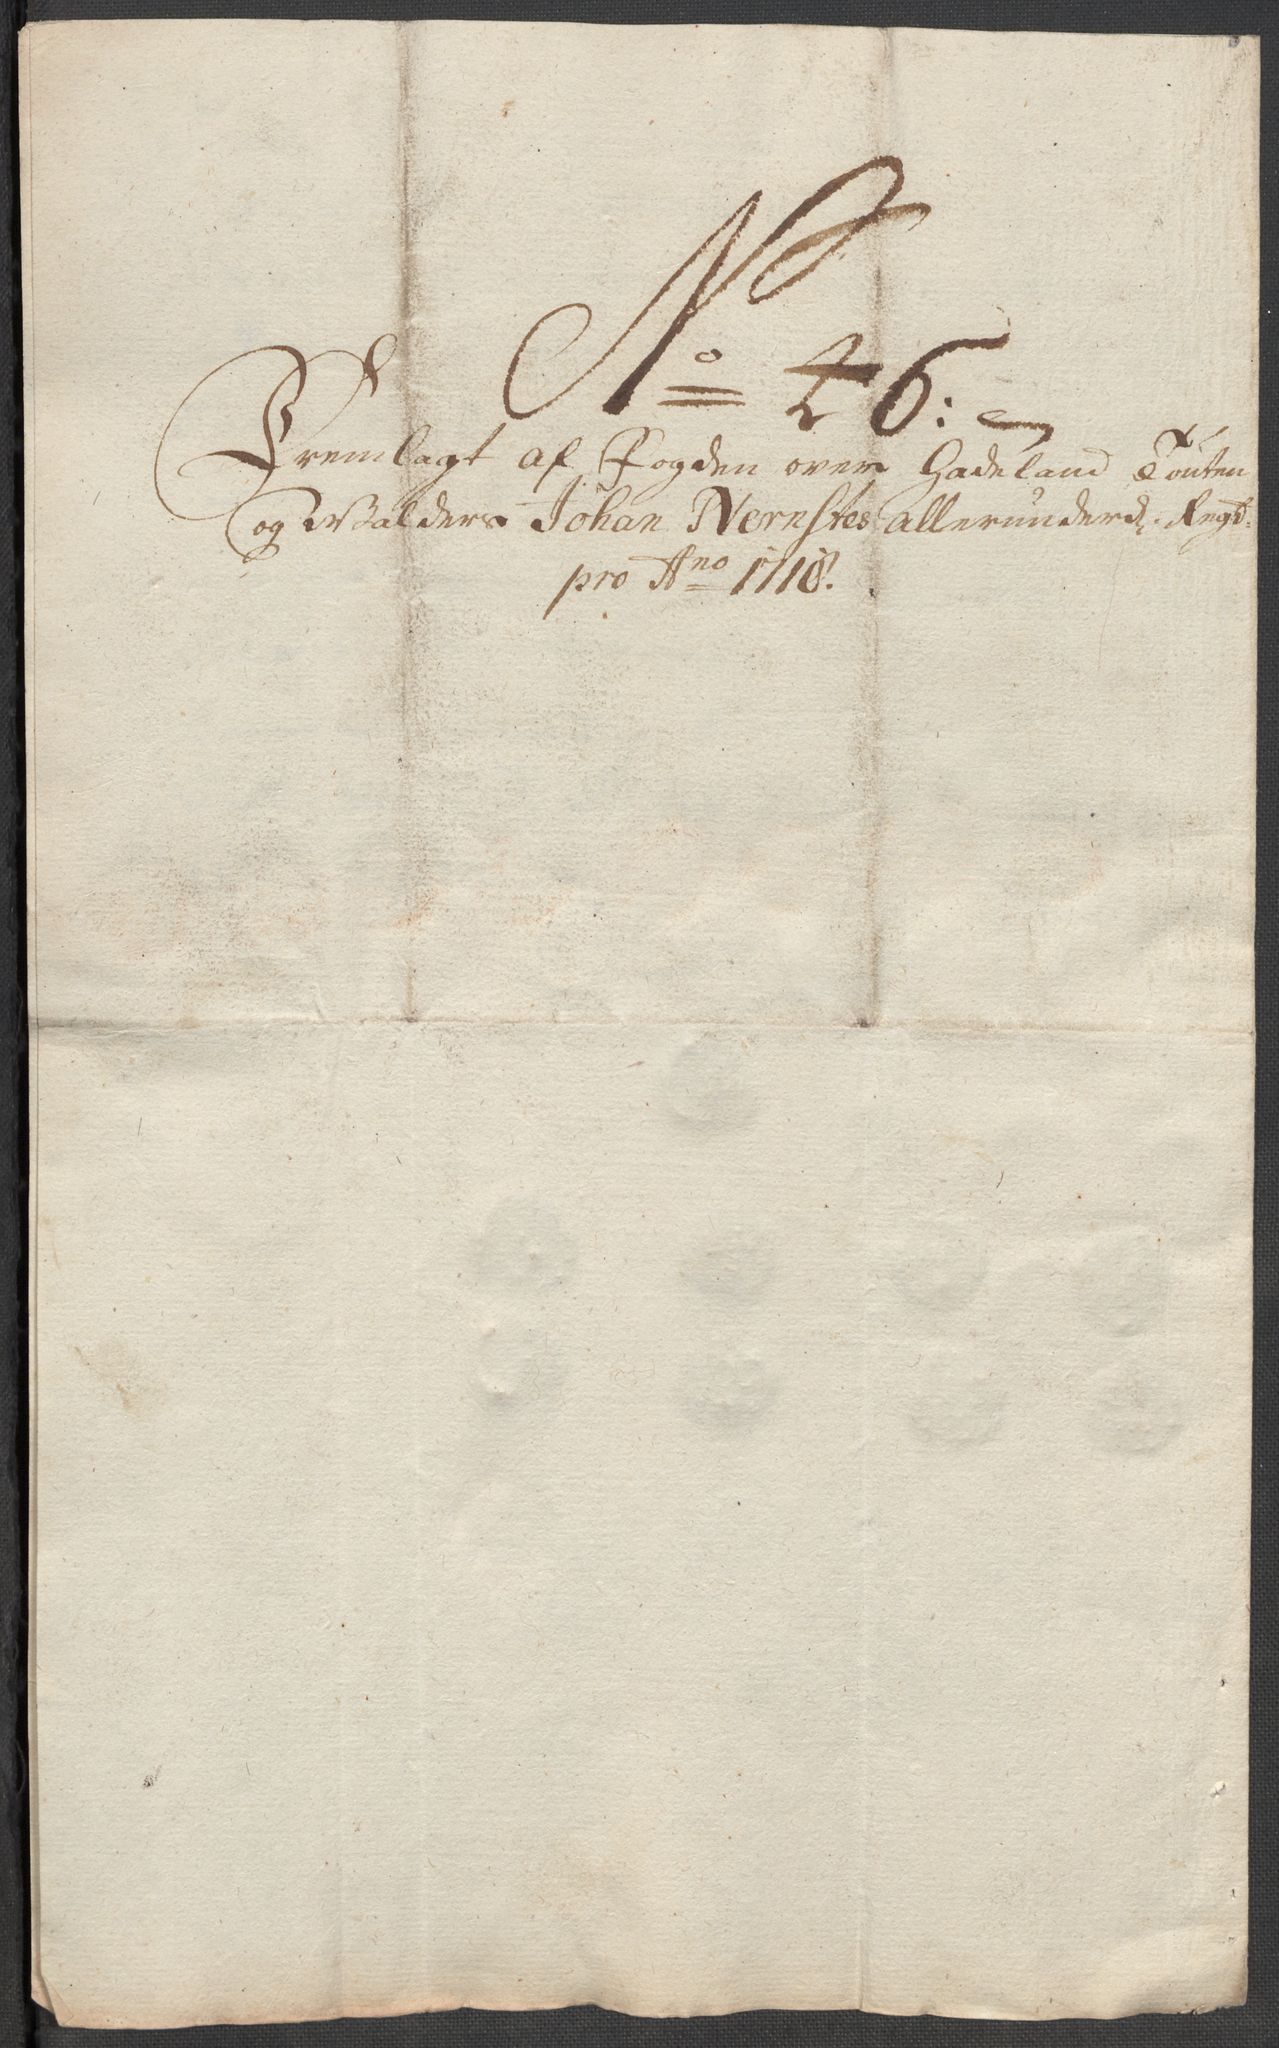 No 46:
Fremlagt af Fogden over Hadeland Touten
og Walders Johan Nernstes allerunderd: Regt:
pro Ano 1718.